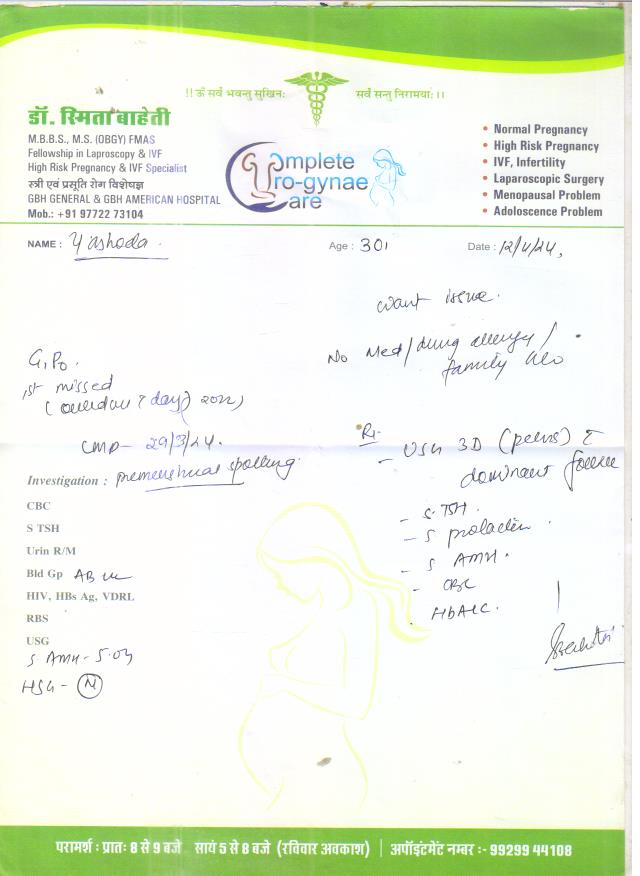 !! ॐ सर्व भवन्तु सुखिनः सर्व सन्तु निरामयाः ।।
डॉ. स्मिता बाहेती
M.B.B.S., M.S. (OBGY) FMAS
Fellowship in Laproscopy & IVF
High Risk Pregnancy & IVF Specialist
स्त्री एवं प्रसूति रोग विशेषज्ञ
GBH GENERAL & GBH AMERICAN HOSPITAL
Mob.: +91 97722 73104
Complete
Uro-gynae
Care
• Normal Pregnancy
• High Risk Pregnancy
• IVF, Infertility
• Laparoscopic Surgery
• Menopausal Problem
• Adoloscence Problem
NAME : Yashoda. Age : 30 Date : 12/4/24,
want issue.
No Med/drug allergy/
family
G1P0.
1st missed
(overdue 7 day) 2022)
LMP - 29/3/24.
premenstrual spotting.
Rx
- USG 3D (pelvis) c̄
dominant
- S. TSH.
- S prolactin
- S AMH.
- CBC
. HbA1C.
Investigation :
CBC
S TSH
Urin R/M
Bld Gp AB
HIV, HBs Ag, VDRL
RBS
USG
S AMH - 5.04
HSG - (N)
परामर्श : प्रातः 8 से 9 बजे सायं 5 से 8 बजे (रविवार अवकाश) | अपॉइंटमेंट नम्बर :- 99299 44108